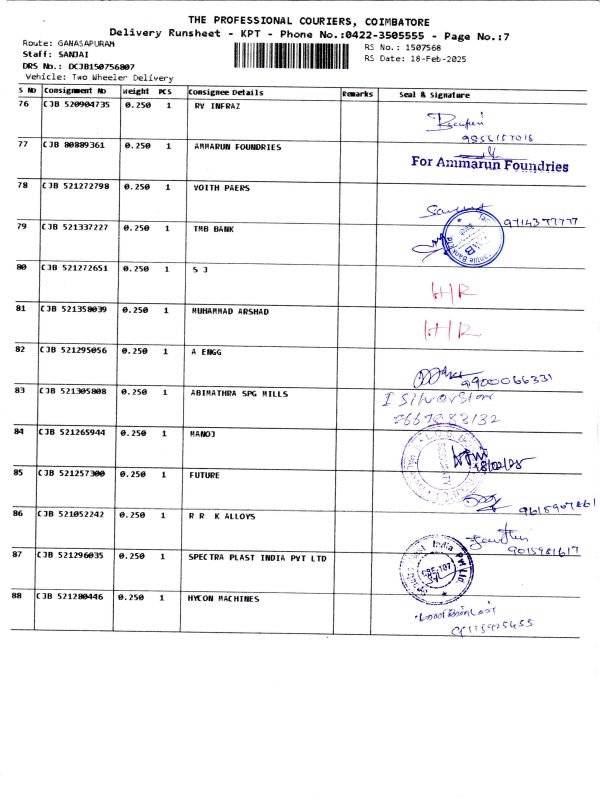 THE PROFESSIONAL COURIERS, COIMBATORE
Delivery Runsheet - KPT - Phone No.:0422-3505555 - Page No.:7
Route: GANASAPURAM
RS No.: 1507568
Staff: SANJAI
RS Date: 18-Feb-2025
DRS No.: DCJB150756807
Vehicle: Two Wheeler Delivery
S No Consignment No Weight PCS Consignee Details Remarks Seal & Signature
76 CJB 520904735 0.250 1 RV INFRAZ
77 CJB 80889361 0.250 1 AMMARUN FOUNDRIES
For Ammarun Foundries
78 CJB 521272798 0.250 1 VOITH PAERS
79 CJB 521337227 0.250 1 TMB BANK
80 CJB 521272651 0.250 1 S J
H/R
81 CJB 521358039 0.250 1 MUHAMMAD ARSHAD
H/R
82 CJB 521295056 0.250 1 A ENGG
9900066331
83 CJB 521305808 0.250 1 ABIMATHRA SPG MILLS
84 CJB 521265944 0.250 1 MANOJ
85 CJB 521257300 0.250 1 FUTURE
86 CJB 521052242 0.250 1 R R K ALLOYS
9015981617
87 CJB 521296035 0.250 1 SPECTRA PLAST INDIA PVT LTD
88 CJB 521280446 0.250 1 HYCON MACHINES